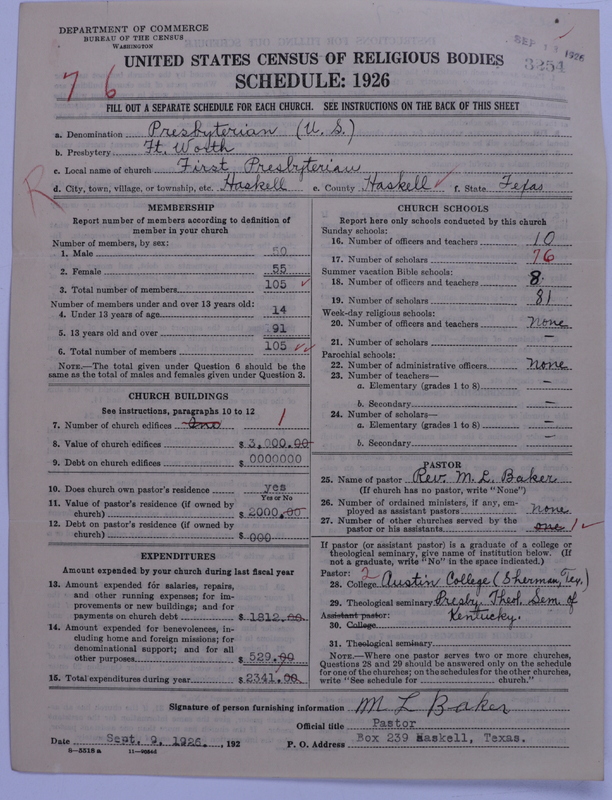 DEPARTMENT OF COMMERCE
BUREAU OF THE CENSUS
WASHINGTON
SEP 1926
3254
7 6
UNITED STATES CENSUS OF RELIGIOUS BODIES
SCHEDULE: 1926
FILL OUT A SEPARATE SCHEDULE FOR EACH CHURCH. SEE INSTRUCTIONS ON THE BACK OF THIS SHEET
R
a. Denomination Presbyterian (U. S.)
b. Presbytery Ft. Worth
c. Local name of church First Presbyterian
d. City, town, village, or township, etc. Haskell e. County Haskell f. State Texas
MEMBERSHIP
Report number of members according to definition of
member in your church
Number of members, by sex:
1. Male 50
2. Female 55
3. Total number of members 105
Number of members under and over 13 years old:
4. Under 13 years of age 14
5. 13 years old and over 91
6. Total number of members 105
NOTE.—The total given under Question 6 should be the
same as the total of males and females given under Question 3.
CHURCH BUILDINGS
See instructions, paragraphs 10 to 12
7. Number of church edifices One 1
8. Value of church edifices $ 3,000.00
9. Debt on church edifices $ 0000000
10. Does church own pastor's residence yes
Yes or No
11. Value of pastor's residence (if owned by
church) $ 2000.00
12. Debt on pastor's residence (if owned by
church) $ 000
EXPENDITURES
Amount expended by your church during last fiscal year
13. Amount expended for salaries, repairs,
and other running expenses; for im-
provements or new buildings; and for
payments on church debt $ 1812.00
14. Amount expended for benevolences, in-
cluding home and foreign missions; for
denominational support; and for all
other purposes $ 529.00
15. Total expenditures during year $ 2341.00
CHURCH SCHOOLS
Report here only schools conducted by this church
Sunday schools:
16. Number of officers and teachers 10
17. Number of scholars 76
Summer vacation Bible schools:
18. Number of officers and teachers 8
19. Number of scholars 81
Week-day religious schools:
20. Number of officers and teachers none
21. Number of scholars —
Parochial schools:
22. Number of administrative officers none
23. Number of teachers—
a. Elementary (grades 1 to 8) —
b. Secondary —
24. Number of scholars—
a. Elementary (grades 1 to 8) —
b. Secondary —
PASTOR
25. Name of pastor Rev. M. L. Baker
(If church has no pastor, write "None")
26. Number of ordained ministers, if any, em-
ployed as assistant pastors none
27. Number of other churches served by the
pastor or his assistants one 1
If pastor (or assistant pastor) is a graduate of a college or
theological seminary, give name of institution below. (If
not a graduate, write "No" in the space indicated.)
Pastor: 2
28. College Austin College (Sherman, Tex.)
29. Theological seminary Presby. Theol. Sem. of
Assistant pastor: Kentucky.
30. College
31. Theological seminary
NOTE.—Where one pastor serves two or more churches,
Questions 28 and 29 should be answered only on the schedule
for one of the churches; on the schedules for the other churches,
write "See schedule for church."
Signature of person furnishing information M L Baker
Official title Pastor
Date Sept. 9, 1926. , 192 P. O. Address Box 239 Haskell, Texas.
8-5518 a